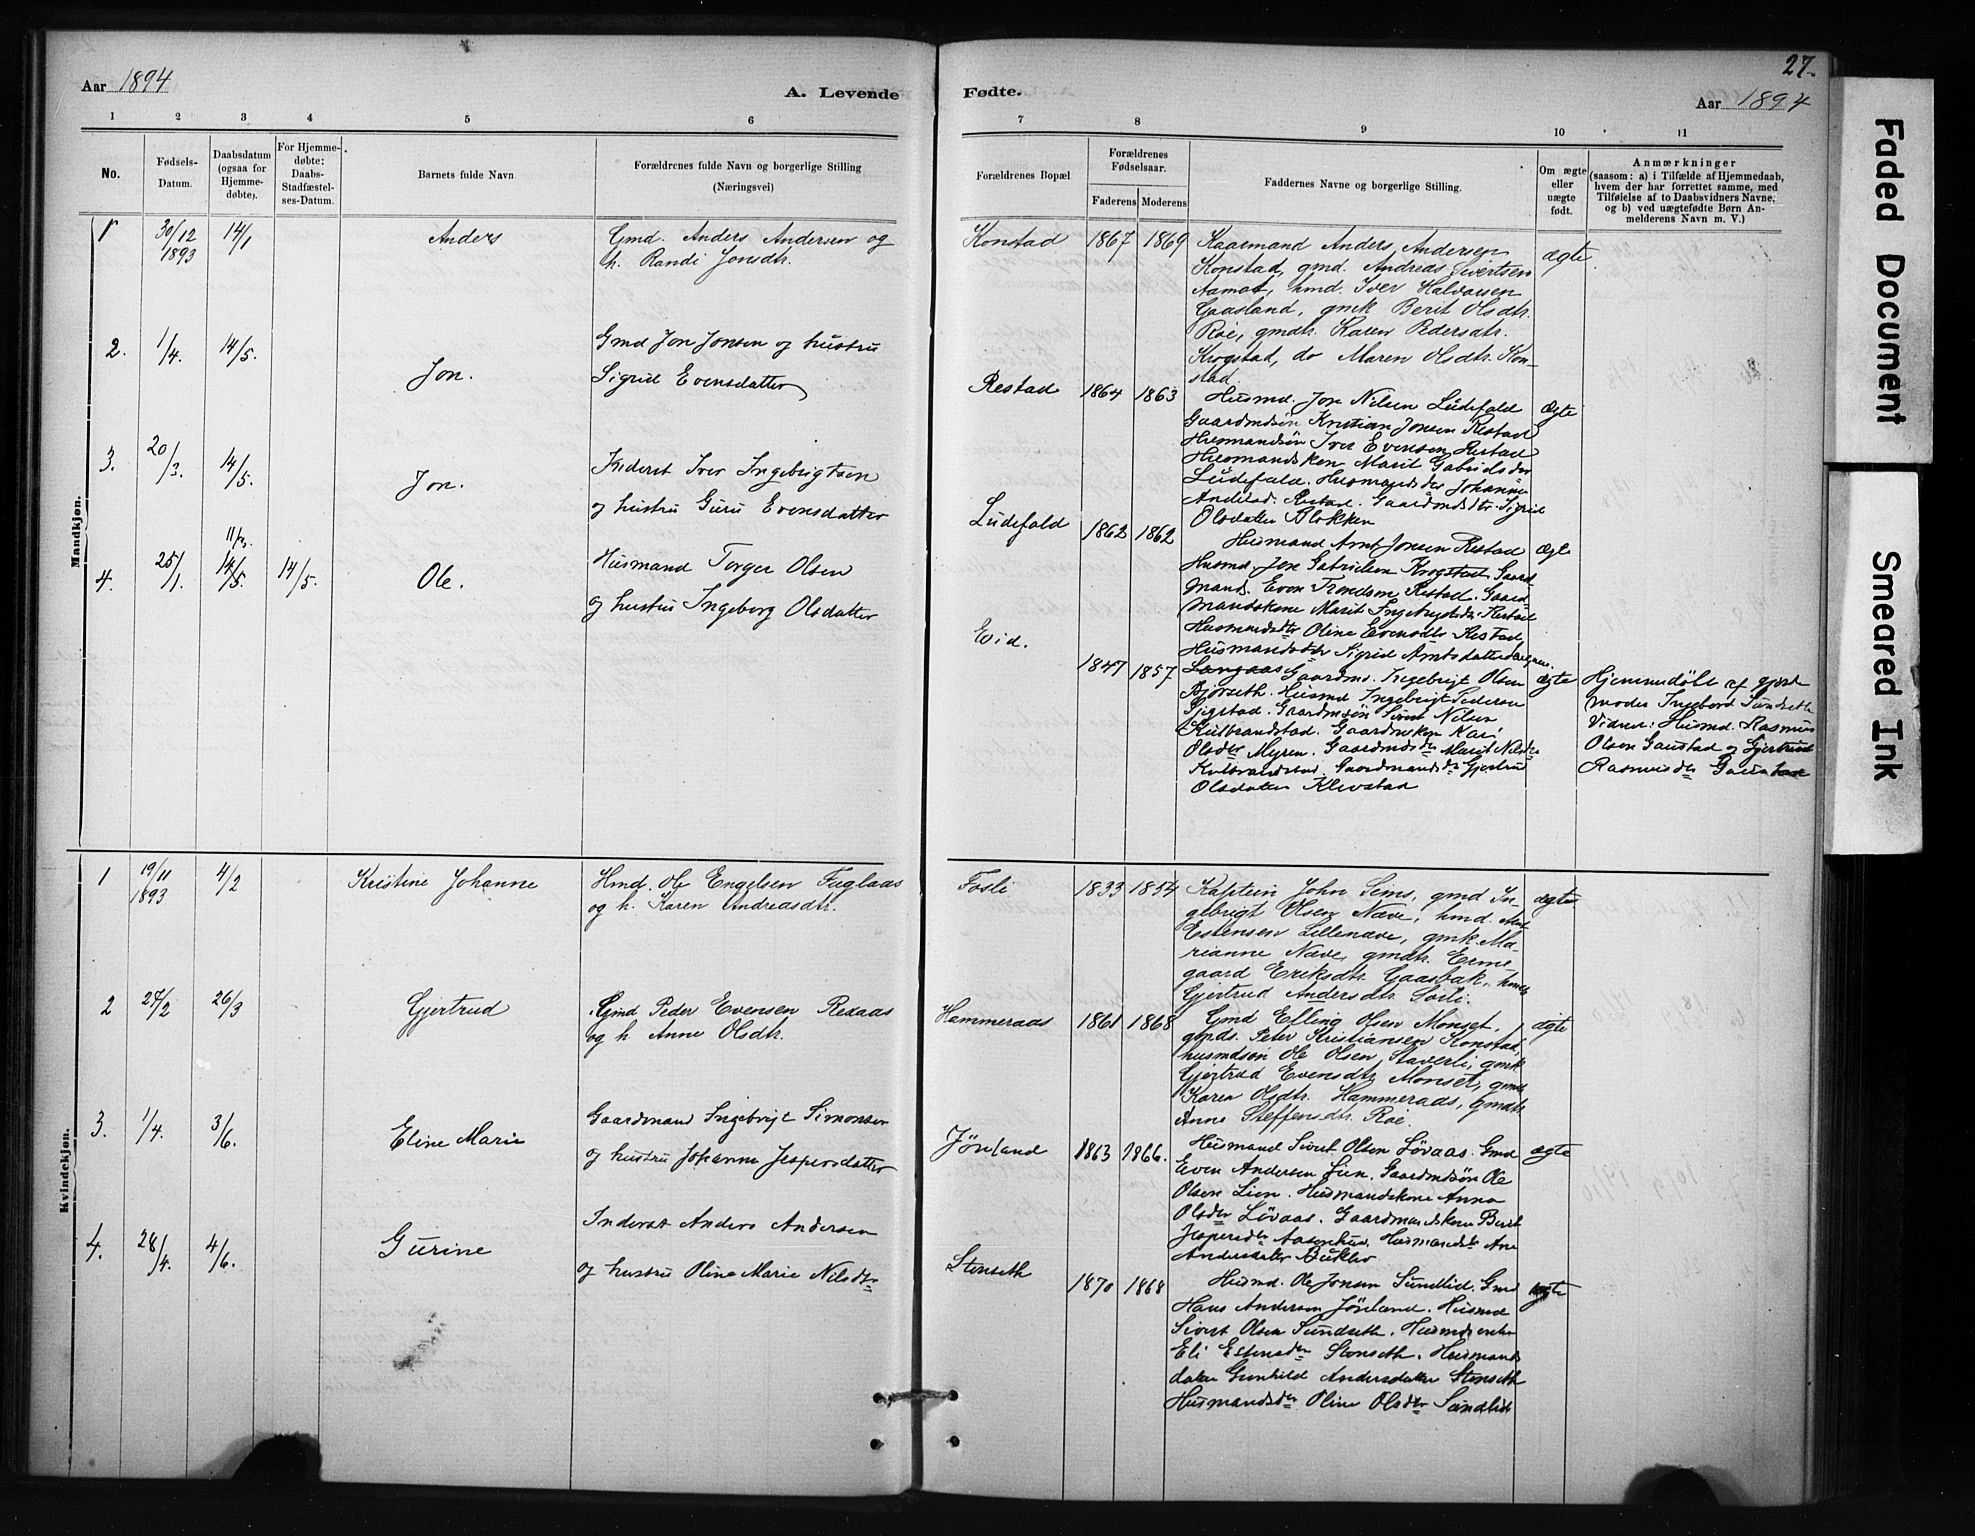 27.
Aar 1894
A. Levende
Fødte.
Aar 1894
1 2 3 4 5 6
7 8 9 10 11
No.
Fødsels-Datum.
Daabsdatum (ogsaa for Hjemmedøbte).
For Hjemmedøbte: Daabs-Stadfæstelses-Datum.
Barnets fulde Navn
Forældrenes fulde Navn og borgerlige Stilling
(Næringsvei)
Forældrenes Bopæl
Forældrenes Fødselsaar.
Faderens Moderens
Faddernes Navne og borgerlige Stilling.
Om ægte eller uægte født.
Anmærkninger
(saasom: a) i Tilfælde af Hjemmedaab,
hvem der har forrettet samme, med
Tilføielse af to Daabsvidners Navne,
og b) ved uægtefødte Børn Anmelderens Navn m. V.)
Mandkjøn.
1 30/12 1893 14/1 Anders
Gmd. Anders Andersen og
h. Randi Jonsdtr.
Konstad 1867 1869
Kaarmand Anders Andersen
Konstad, gmd. Andreas Sivertsen
Aamot, hmd. Iver Halvorsen
Gaasland, gmk Berit Olsdtr.
Røe, gmdtr. Karen Pedersdtr.
Krogstad, do Maren Olsdtr. Kon-
stad
ægte
2. 1/4. 14/5. Jon.
Gmd Jon Jonsen og hustru
Sigrid Evensdatter
Restad 1864 1863
Husmd. Jon Nilsen Ludefald
Gaardmdsøn Kristian Jonsen Restad
Husmandsøn Iver Evensen Restad
Husmandsken Marit Gabrielsdtr
Ludefald. Husmandsdtr Johanna
Andstad. Restad. Gaardmdsdtr. Sigrid
Olsdatter Blokken
Ægte
3. 20/3. 14/5. Jon.
Inderst Iver Ingebrigtsen
og hustru Guru Evensdatter
Ludefald 1862 1862
Husmand Arnt Jonsen Restad
Husmd. Jon Gabrielsen Krogstad. Gaard-
mand. Even Trondsen Restad. Gaard
mandskone Marit Ingebrigtsdtr. Restad
Husmandsdtr Oline Evensdtr Restad
Husmandsdtr Sigrid Arntsdatter
ægte
4. 25/1. 14/5 14/5. Ole.
Husmand Torger Olsen
og hustru Ingeborg Olsdatter
Evid. 1847 1857
Langaas Gaardmd. Ingebrigt Olsen
Bjørseth. Husmd Ingebrigt Pedersen
Gjerstad. Gaardmsøn Sivert Nilsen
Kulbrandstad. Gaardmsken Kari
Olsdtr Myren. Gaardmdsdtr Marit Nilsdtr
Kulbrandstad. Gaardmandsdtr Gjertrud
Olsdatter Klevstad
ægte
Hjemmedøbt af gjorde
moder Ingebord Sundseth
Vidner: Husmd. Rasmus
Olsen Gaustad og Gjertrud
Rasmusdtr Gaustad
Kvindekjøn.
1 19/11 1893 4/2 Kristine Johanne
Hmd. Ole Engelsen Fuglaas
og h. Karen Andreasdtr.
Fosli 1833 1854
Kaptein John Sems, gmd In-
gebrigt Olsen Næve, hmd.
Estensen Lillenæve, gmk. Ma-
rianne Næve, gmdtr. Erme-
gaard Eriksdtr. Gaasbak,
Gjertrud Andersdtr. Sørli.
ægte
2 24/2 26/3 Gjertrud
Gmd Peder Evensen Rexaas
og h. Anne Olsdtr.
Hammeraas 1861 1868
Gmd Efling Olsen Monset,
gmds. Peter Kristiansen Konstad,
husmdsøn Ole Olsen Staverli, gmk
Gjertrud Evensdtr. Monset,
Karen Olsdtr. Hammeraas, gmdtr.
Anne Steffensdtr. Røe.
ægte
3. 1/4. 3/6. Eline Marie
Gaardmand Ingebrigt Simonsen
og hustru Johanne Jespersdatter
Jønland 1863 1866.
Husmand Sivert Olsen Løvaas. Gmd
Even Andersen Lien. Gaardmdsøn Ole
Olsen Lien. Husmandskone Anna
Olsdtr Løvaas. Gaardmandskone Berit
Jespersdtr Aasenhus. Husmandsdtr Ane
Andersdatter
ægte
4. 28/4. 4/6. Gurine
Inderst Anders Andersen
og hustru Oline Marie Nilsdtr
Stenseth 1870 1868
Husmd. Ole Jonsen Sundlid. Gmd
Hans Andersen Jønland. Husmd
Sivert Olsen Sundseth. Husmds enke
Eli Estensdtr Stenseth. Husmands
datter Gunhild Andersdatter Stenseth
Husmandsdtr Oline Olsdtr Sundlid
ægte
Faded Document
Smeared Ink